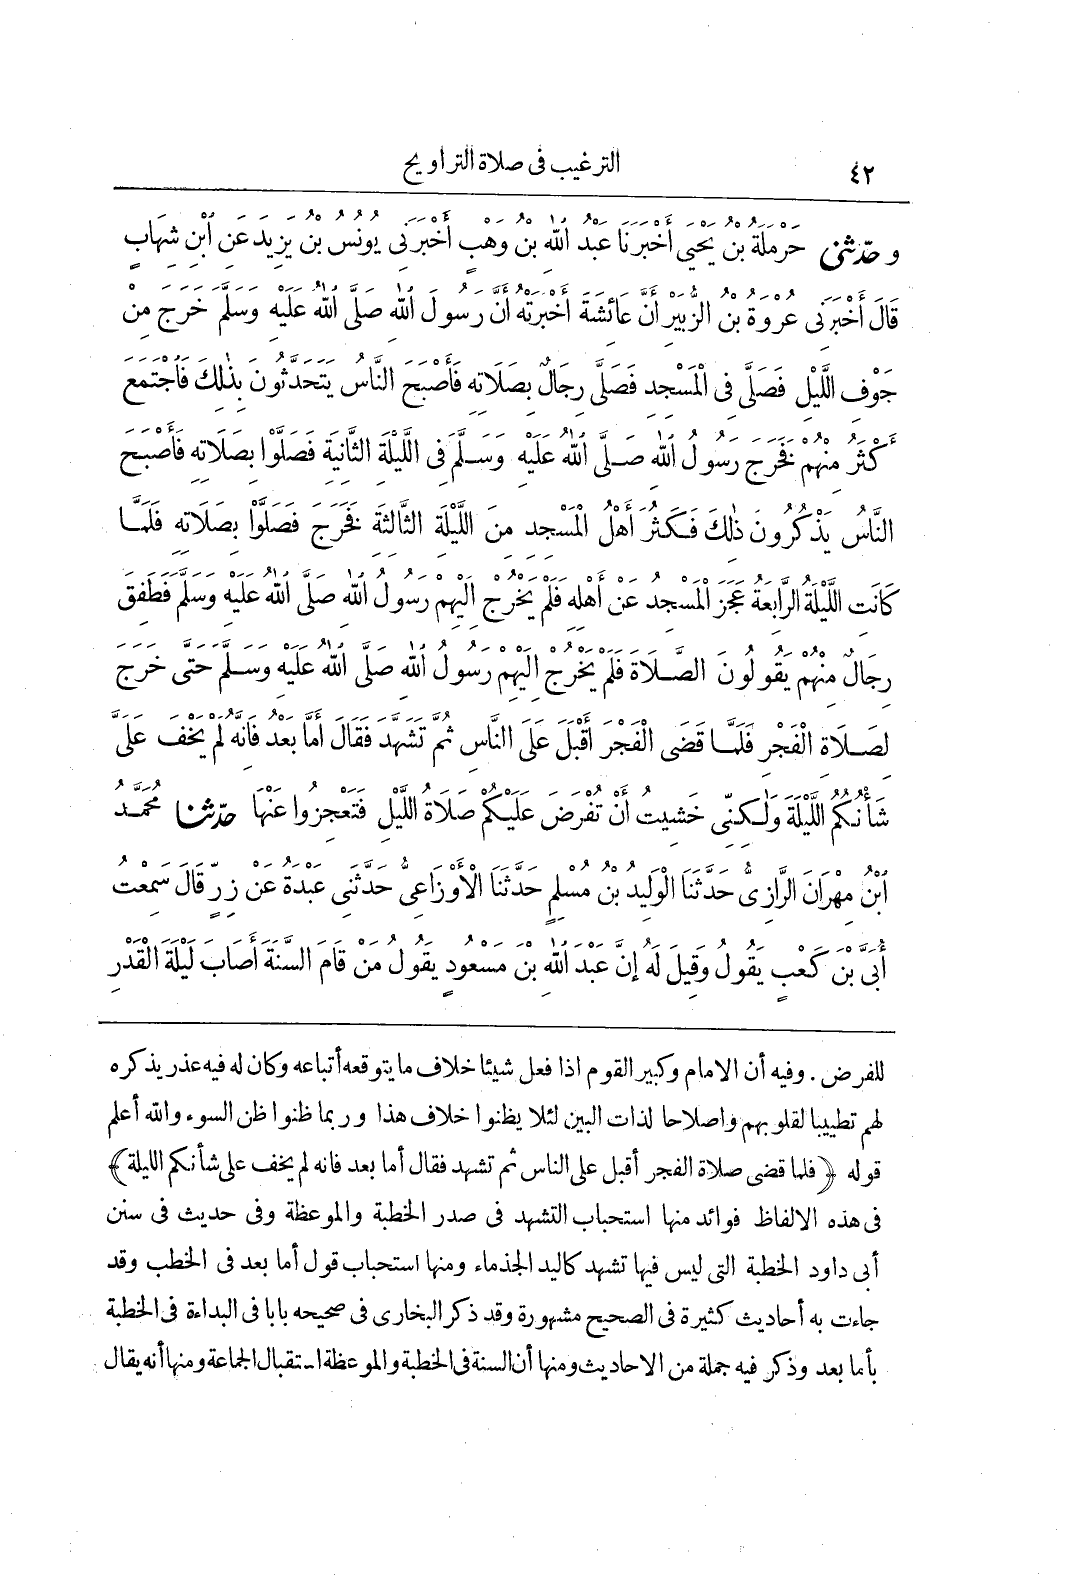 ٤٢
الترغيب فى صلاة التراويح
و حَدَّثَنِى حَرْمَلَةُ بْنُ يَحْيَى أَخْبَرَنَا عَبْدُ اللهِ بْنُ وَهْبٍ أَخْبَرَنِى يُونُسُ بْنُ يَزِيدَ عَنِ ابْنِ شِهَابٍ
قَالَ أَخْبَرَنِى عُرْوَةُ بْنُ الزُّبَيْرِ أَنَّ عَائِشَةَ أَخْبَرَتْهُ أَنَّ رَسُولَ اللهِ صَلَّى اللهُ عَلَيْهِ وَسَلَّمَ خَرَجَ مِنْ
جَوْفِ اللَّيْلِ فَصَلَّى فِى الْمَسْجِدِ فَصَلَّى رِجَالٌ بِصَلَاتِهِ فَأَصْبَحَ النَّاسُ يَتَحَدَّثُونَ بِذٰلِكَ فَاجْتَمَعَ
أَكْثَرُ مِنْهُمْ فَخَرَجَ رَسُولُ اللهِ صَلَّى اللهُ عَلَيْهِ وَسَلَّمَ فِى اللَّيْلَةِ الثَّانِيَةِ فَصَلَّوْا بِصَلَاتِهِ فَأَصْبَحَ
النَّاسُ يَذْكُرُونَ ذٰلِكَ فَكَثُرَ أَهْلُ الْمَسْجِدِ مِنَ اللَّيْلَةِ الثَّالِثَةِ فَخَرَجَ فَصَلَّوْا بِصَلَاتِهِ فَلَمَّا
كَانَتِ اللَّيْلَةُ الرَّابِعَةُ عَجَزَ الْمَسْجِدُ عَنْ أَهْلِهِ فَلَمْ يَخْرُجْ إِلَيْهِمْ رَسُولُ اللهِ صَلَّى اللهُ عَلَيْهِ وَسَلَّمَ فَطَفِقَ
رِجَالٌ مِنْهُمْ يَقُولُونَ الصَّلَاةَ فَلَمْ يَخْرُجْ إِلَيْهِمْ رَسُولُ اللهِ صَلَّى اللهُ عَلَيْهِ وَسَلَّمَ حَتَّى خَرَجَ
لِصَلَاةِ الْفَجْرِ فَلَمَّا قَضَى الْفَجْرَ أَقْبَلَ عَلَى النَّاسِ ثُمَّ تَشَهَّدَ فَقَالَ أَمَّا بَعْدُ فَإِنَّهُ لَمْ يَخْفَ عَلَىَّ
شَأْنُكُمُ اللَّيْلَةَ وَلٰكِنِّى خَشِيتُ أَنْ تُفْرَضَ عَلَيْكُمْ صَلَاةُ اللَّيْلِ فَتَعْجِزُوا عَنْهَا حَدَّثَنَا مُحَمَّدُ
ابْنُ مِهْرَانَ الرَّازِىُّ حَدَّثَنَا الْوَلِيدُ بْنُ مُسْلِمٍ حَدَّثَنَا الْأَوْزَاعِىُّ حَدَّثَنِى عَبْدَةُ عَنْ زِرٍّ قَالَ سَمِعْتُ
أُبَىَّ بْنَ كَعْبٍ يَقُولُ وَقِيلَ لَهُ إِنَّ عَبْدَ اللهِ بْنَ مَسْعُودٍ يَقُولُ مَنْ قَامَ السَّنَةَ أَصَابَ لَيْلَةَ الْقَدْرِ
للفرض . وفيه أن الامام وكبير القوم اذا فعل شيئا خلاف ما يتوقعه أتباعه وكان له فيه عذر يذكره
لهم تطييبا لقلوبهم واصلاحا لذات البين لئلا يظنوا خلاف هذا وربما ظنوا ظن السوء والله أعلم
قوله ﴿فلما قضى صلاة الفجر أقبل على الناس ثم تشهد فقال أما بعد فانه لم يخف على شأنكم الليلة﴾
فى هذه الالفاظ فوائد منها استحباب التشهد فى صدر الخطبة والموعظة وفى حديث فى سنن
أبى داود الخطبة التى ليس فيها تشهد كاليد الجذماء ومنها استحباب قول أما بعد فى الخطب وقد
جاءت به أحاديث كثيرة فى الصحيح مشهورة وقد ذكر البخارى فى صحيحه بابا فى البداءة فى الخطبة
بأما بعد وذكر فيه جملة من الاحاديث ومنها أن السنة فى الخطبة والموعظة استقبال الجماعة ومنها أنه يقال